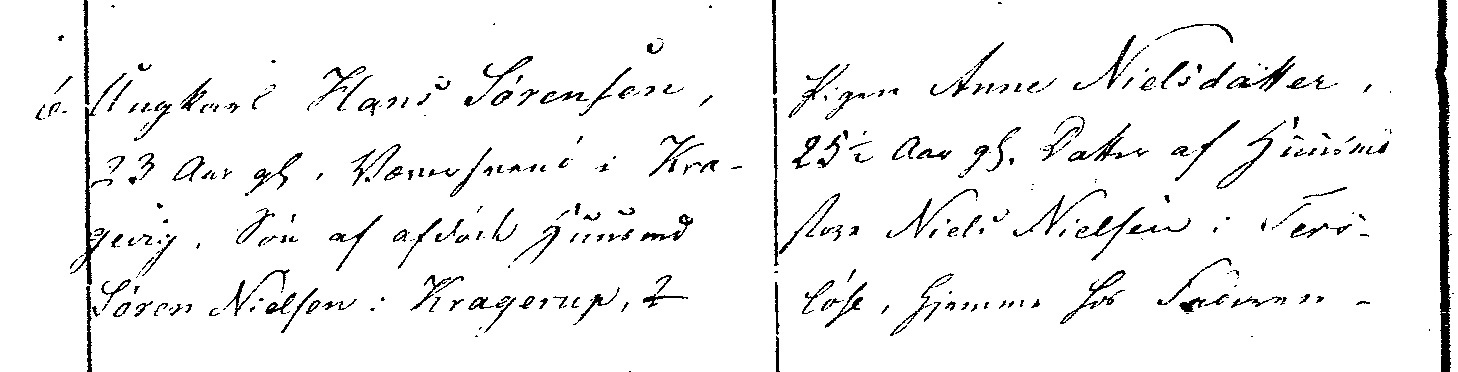 6. Ungkarl Hans Sørensen,
23 Aar gl, Væversvend i Kra-
gerup. Søn af afdøde Huusmd
Søren Nielsen i Kragerup, 2
Pigen Anne Nielsdatter,
25½ Aar gl. Datter af Huusmd
Niels Nielsen i Ters-
løse, hjemme hos Faderen -